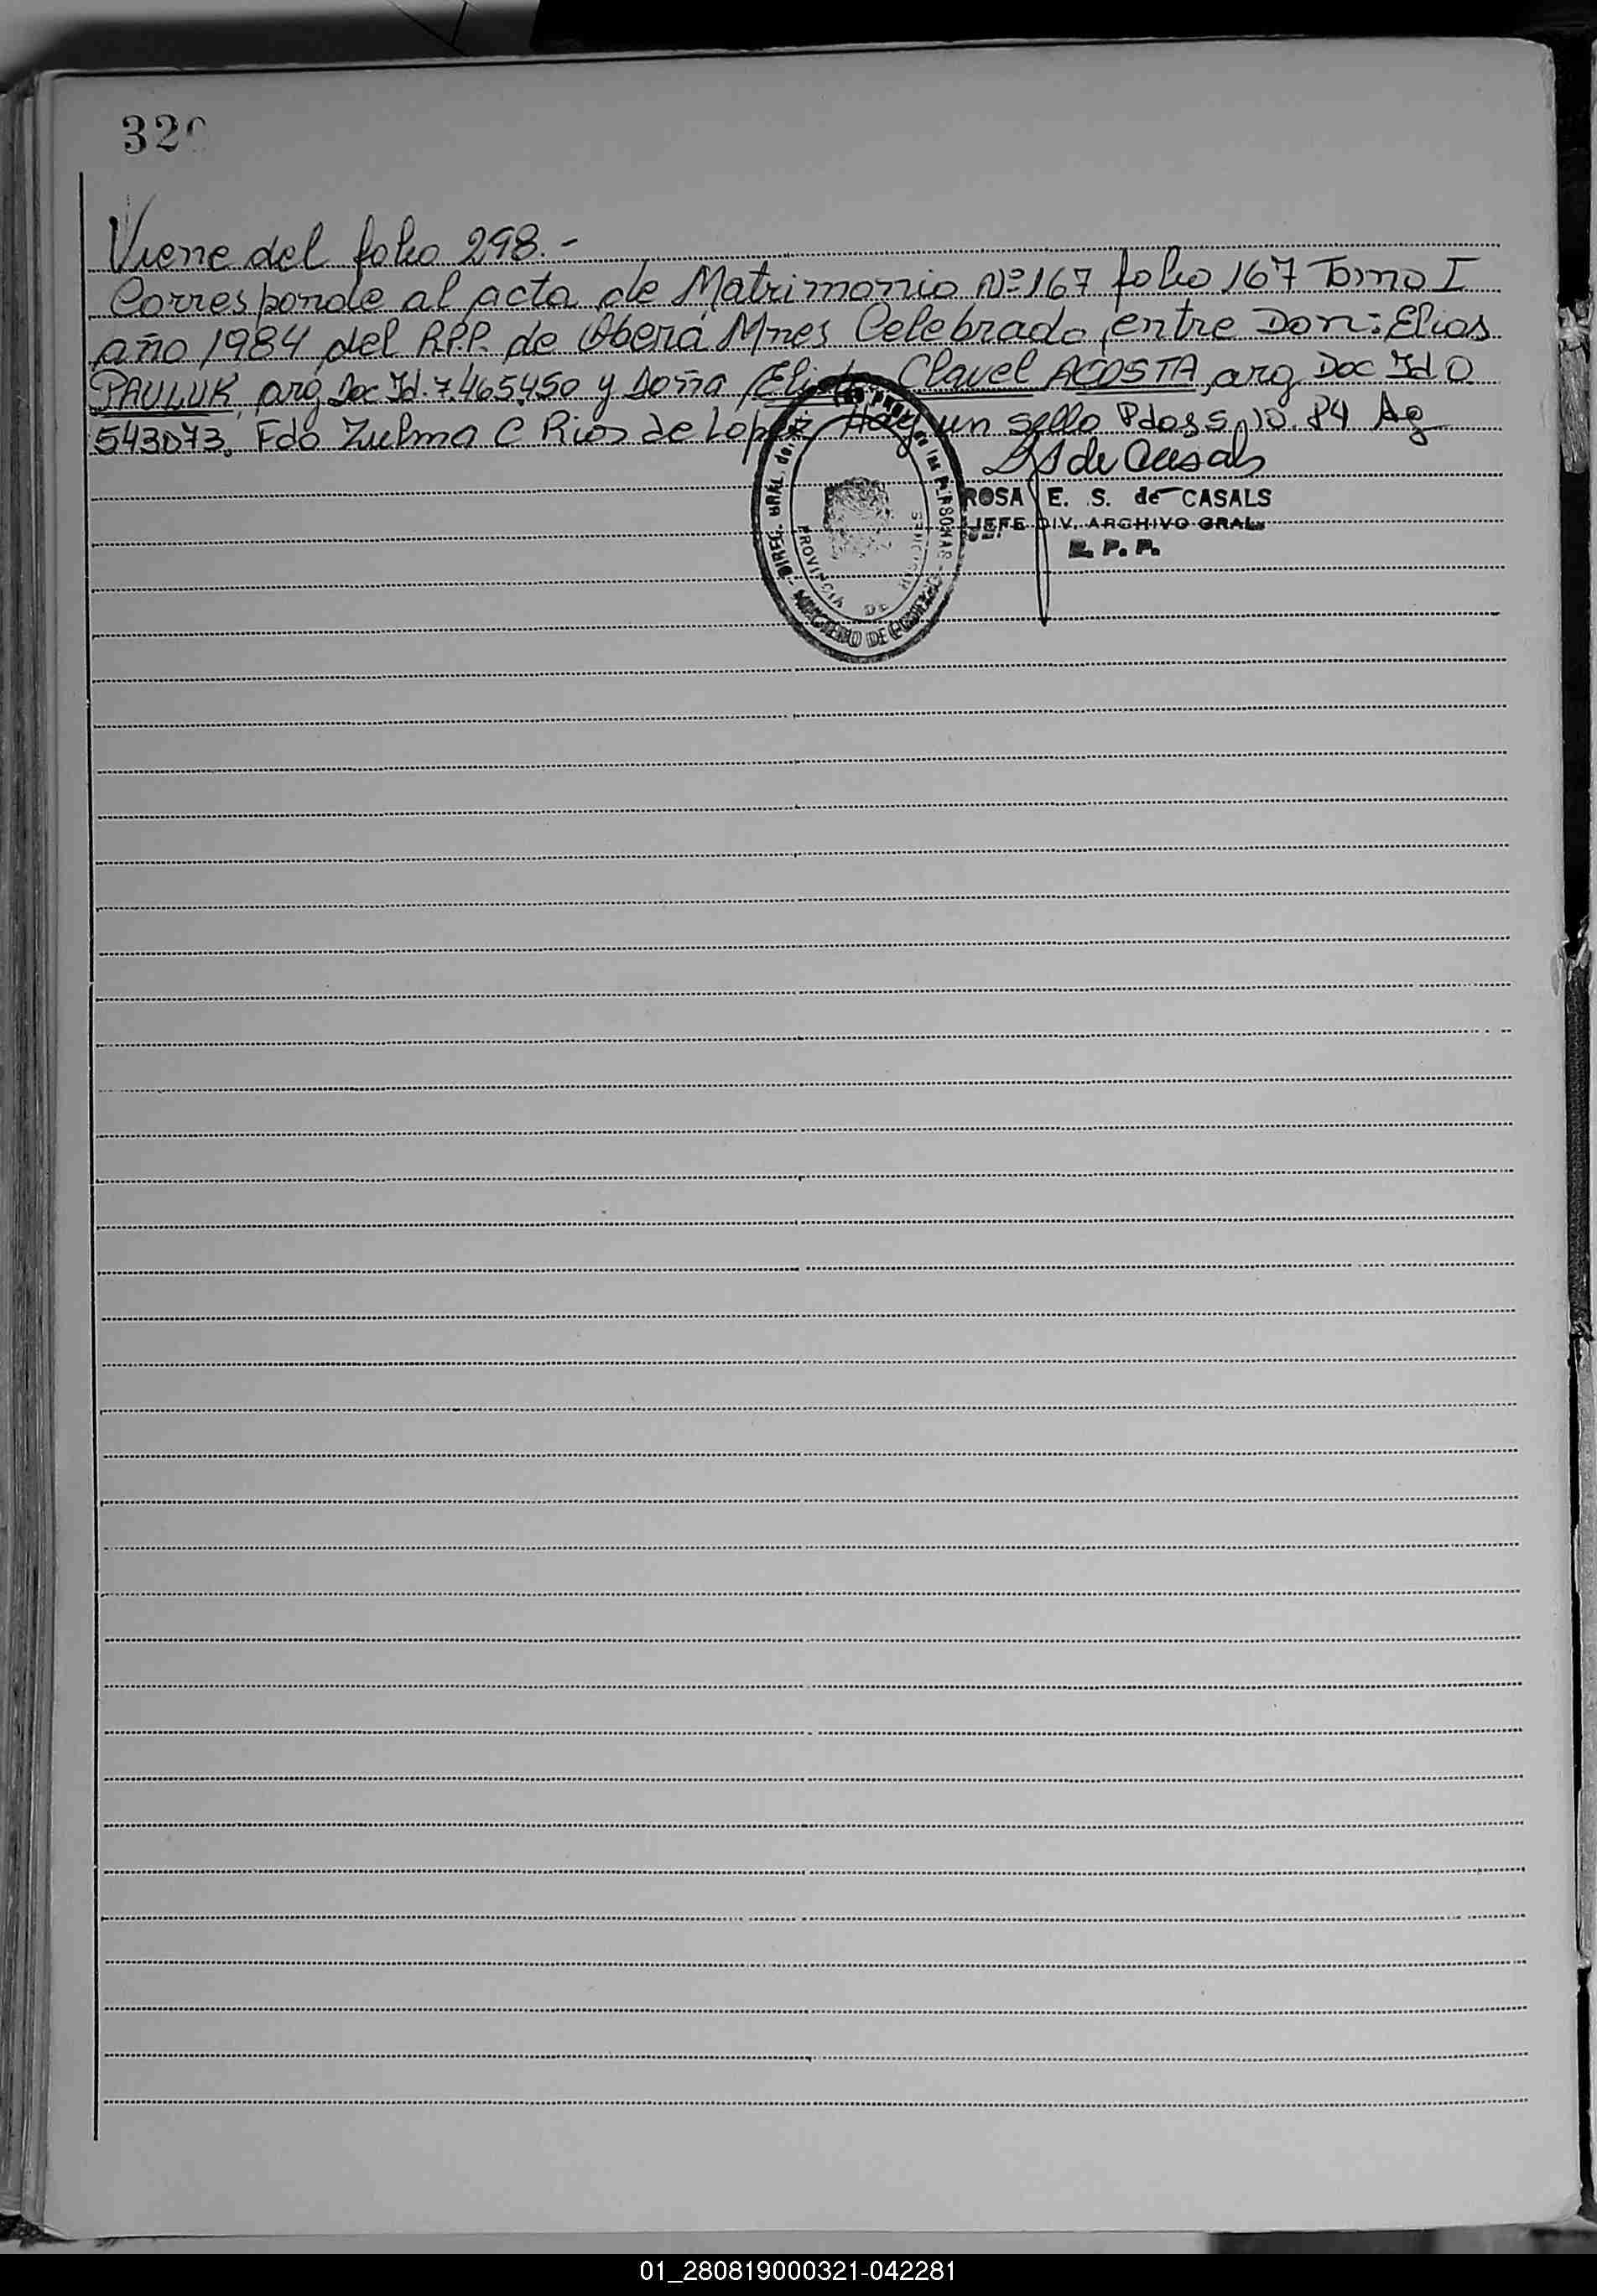 32
Viene del folio 298.-
Corresponde al acta de Matrimonio Nº 167 folio 167 Tomo I
año 1984 del R.P.P. de Oberá Mnes Celebrado entre Don: Elias
PAULUK, arg Doc Id. 7.465.450 y Doña Clavel ACOSTA, arg Doc Id 0
543073. Fdo Zulma C Rios de Lopez Hay un sello Pdas 5.10.84 Ag
de Casals
ROSA E. S. de CASALS
JEFE DIV. ARCHIVO GRAL.
R. P. P.
DIREC. GRAL. del REG. PROV. de las PERSONAS - MINISTERIO DE GOBIERNO
PROVINCIA DE MISIONES
01_280819000321-042281